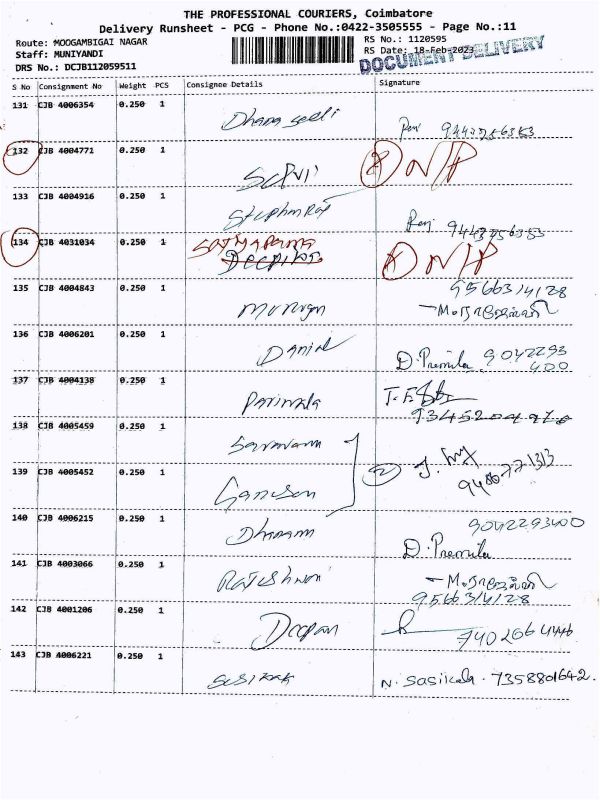 THE PROFESSIONAL COURIERS, Coimbatore
Delivery Runsheet - PCG - Phone No.:0422-3505555 - Page No.:11
Route: MOOGAMBIGAI NAGAR
RS No.: 1120595
Staff: MUNIYANDI
RS Date: 18-Feb-2023
DRS No.: DCJB112059511
DOCUMENT DELIVERY
S No Consignment No Weight PCS Consignee Details Signature
131 CJB 4006354 0.250 1
132 CJB 4004771 0.250 1 Selvi
133 CJB 4004916 0.250 1 Stephnraj
134 CJB 4031034 0.250 1
135 CJB 4004843 0.250 1 Murugan 9566314128
136 CJB 4006201 0.250 1 Daniel D. Premila 9042293
400
137 CJB 4004138 0.250 1 Parimala
138 CJB 4005459 0.250 1 Saravanan
139 CJB 4005452 0.250 1 Ganesan 2
140 CJB 4006215 0.250 1 9042293400
D. Premila
141 CJB 4003066 0.250 1 Rajeshwari
9566314128
142 CJB 4001206 0.250 1 Deepan
143 CJB 4006221 0.250 1 N. Sasikala. 7358801642.